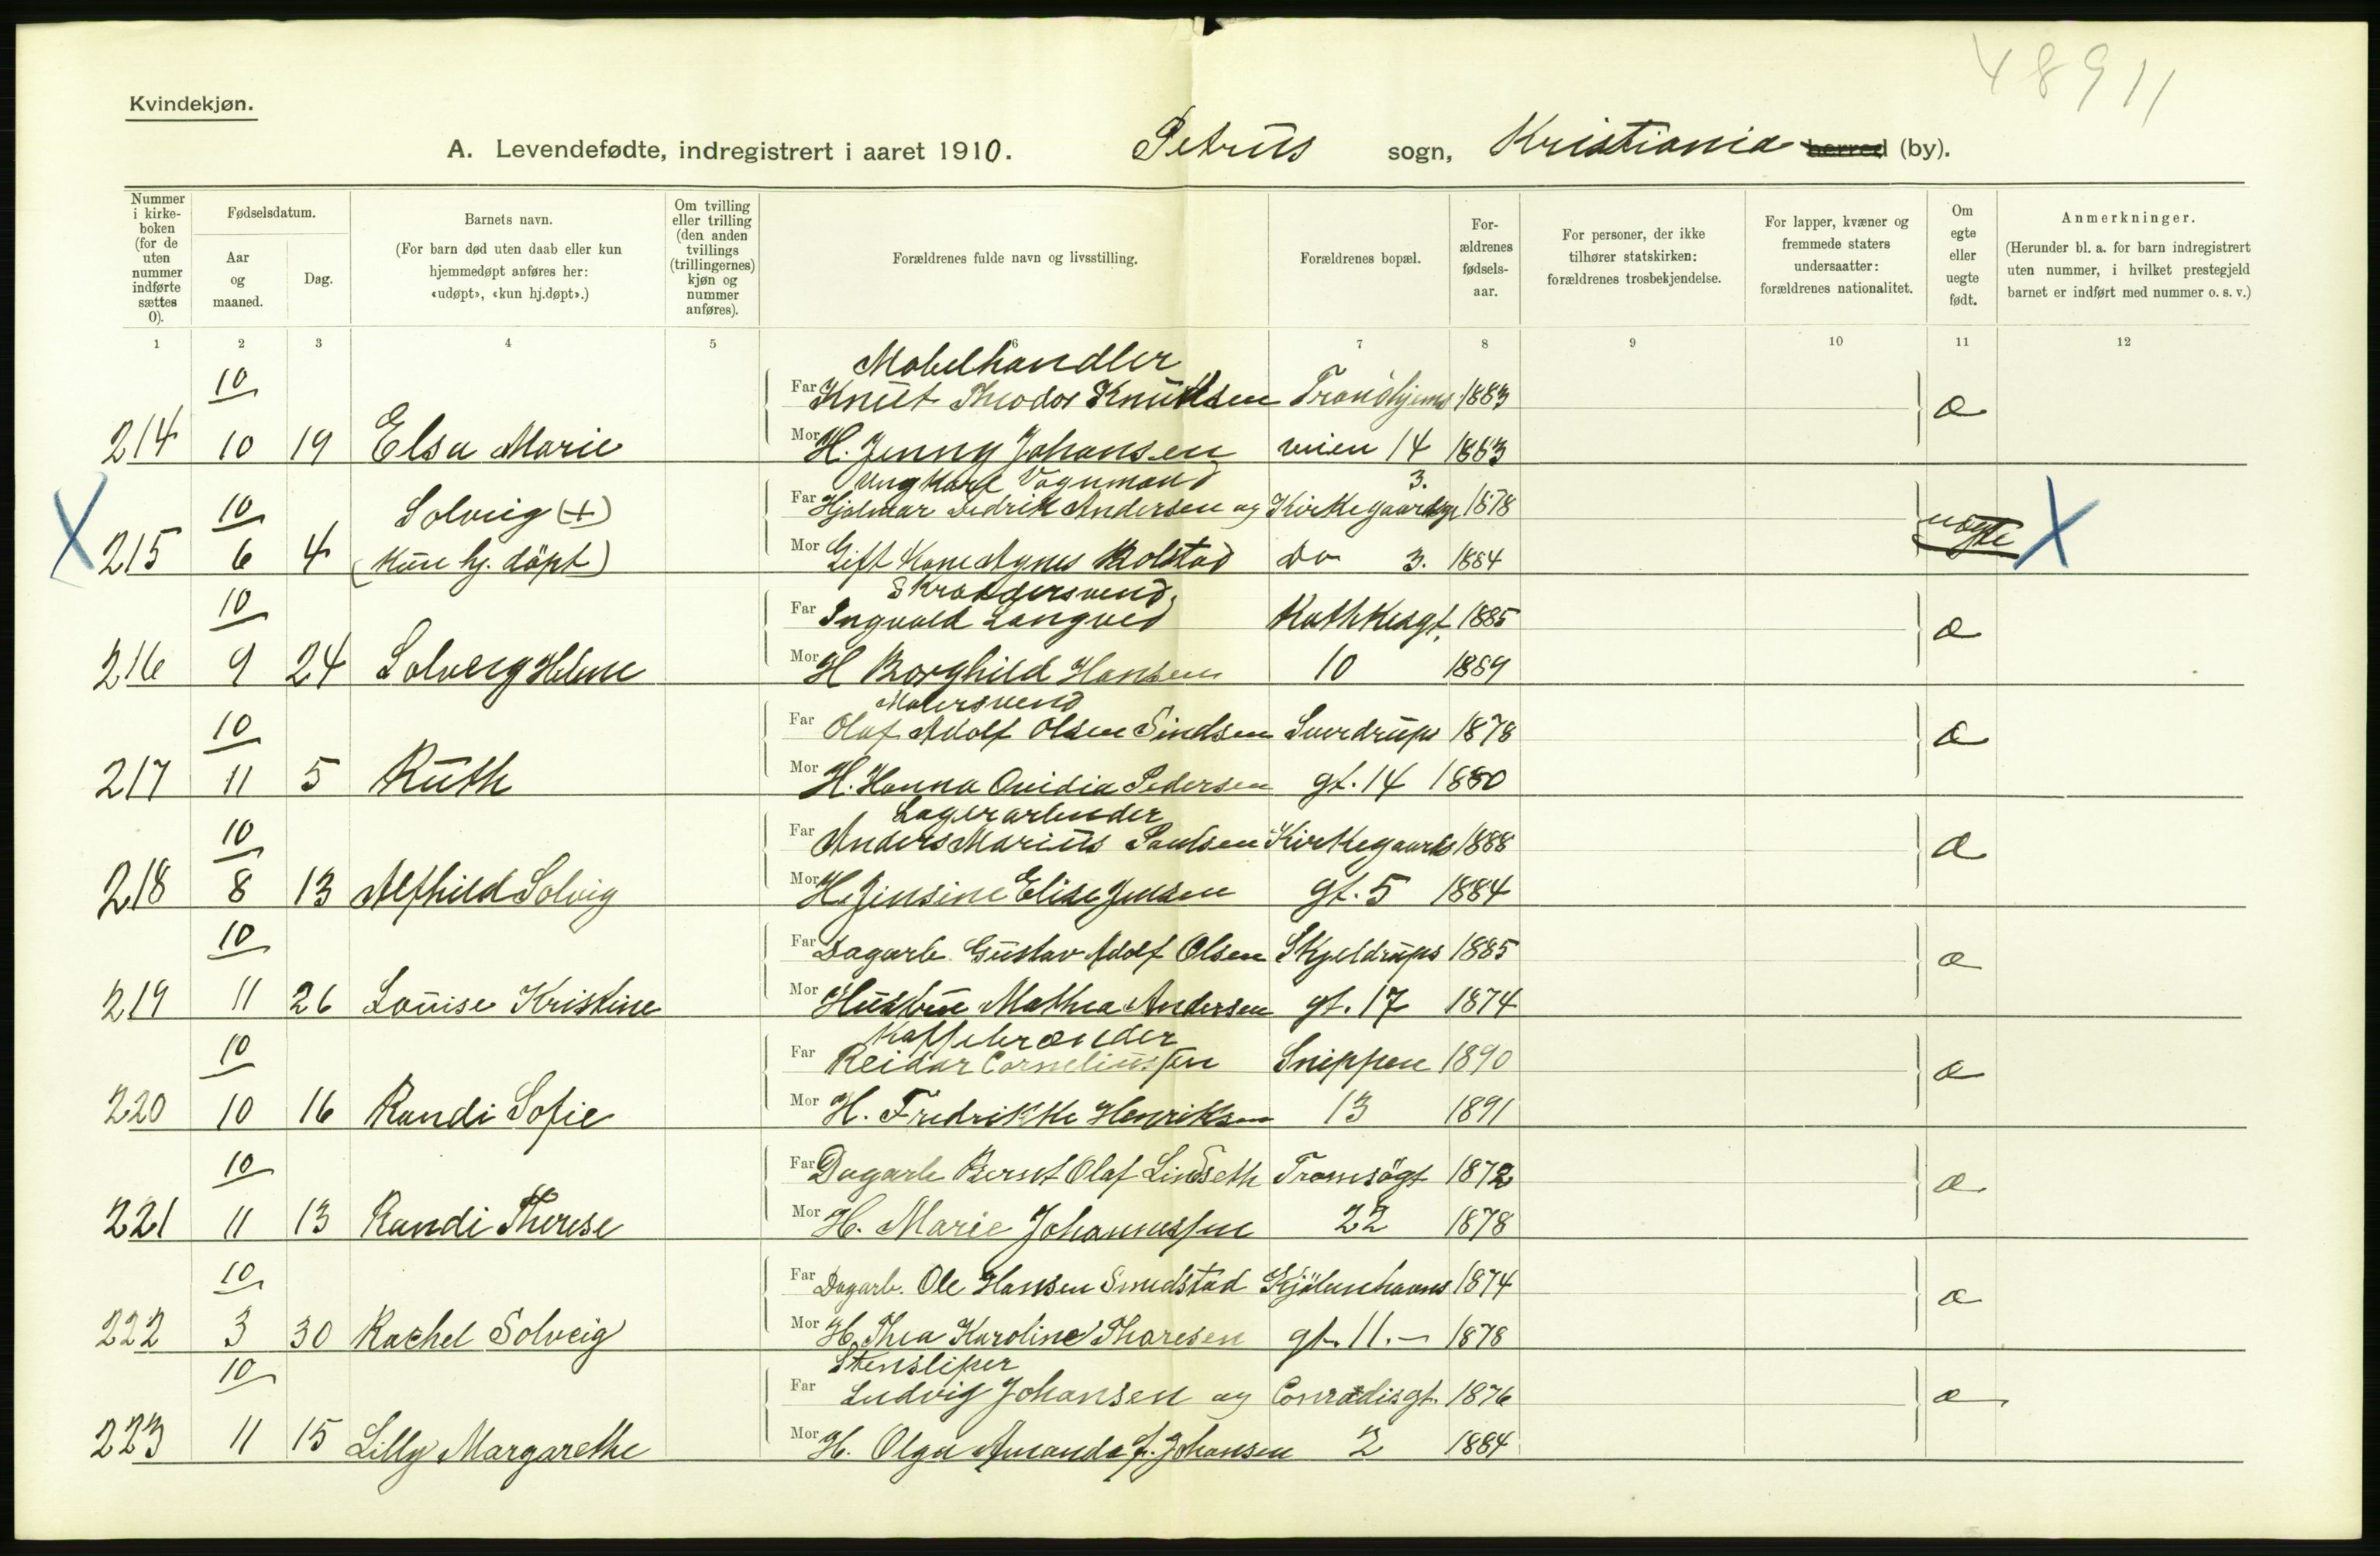 48911
Kvindekjøn.
A. Levendefødte, indregistrert i aaret 1910. Petrus sogn, Kristiania herred (by).
Nummer i kirke- boken (for de uten nummer indførte sættes 0).
Fødselsdatum.
Aar og maaned.
Dag.
Barnets navn.
(For barn død uten daab eller kun hjemmedøpt anføres her: «udøpt», «kun hj.døpt».)
Om tvilling eller trilling (den anden tvillings (trillingernes) kjøn og nummer anføres).
Forældrenes fulde navn og livsstilling.
Forældrenes bopæl.
For- ældrenes fødsels- aar.
For personer, der ikke tilhører statskirken: forældrenes trosbekjendelse.
For lapper, kvæner og fremmede staters undersaatter: forældrenes nationalitet.
Om egte eller uegte født.
Anmerkninger.
(Herunder bl. a. for barn indregistrert uten nummer, i hvilket prestegjeld barnet er indført med nummer o. s. v.)
1 2 3 4 5 6 7 8 9 10 11 12
Møbelhandler
10 Far Knut Theodor Knutsen Trondhjems 1883
214 10 19 Elsa Marie Mor H. Jenny Johansen veien 14 1883 æ
Ungkarl Vognmand 3.
10 Solveig (+) Far Hjalmar Fredrik Andersen og Kirkegaardsgt 1878
X 215 6 4 (kun hj. döpt) Mor Gift Kone Agnes Rolstad Do 3. 1884 uægte X
Skræddersvend
10 Far Ingvald Langved Rathkesgt. 1885
216 9 24 Solveig Helene Mor H Borghild Hansen 10 1889 æ
Malersvend
10 Far Olaf Adolf Olsen Sindsen Sverdrups 1878
217 11 5 Ruth Mor H. Hanna Ovidia Pedersen gt. 14 1880 æ
Lagerarbeider
10 Far Anders Marius Paulsen Kirkegaards 1888
218 8 13 Alfhild Solvig Mor H. Jensine Elise Jensen gt. 5 1884 æ
10 Far Dagarb. Gustav Adolf Olsen Skjeldrups 1885
219 11 26 Louise Kristine Mor Hustru Mathea Andersen gt. 17 1874 æ
Kaffebrænder
10 Far Reidar Corneliussen Snippen 1890
220 10 16 Randi Sofie Mor H. Fredrikke Henriksen 13 1891 æ
10 Far Dagarb Bernt Olaf Lindseth Tromsögt 1872
221 11 13 Randi Therese Mor H. Marie Johannessen 22 1878 æ
10 Far Dagarb. Ole Hansen Smedstad Kjöbenhavns 1874
222 3 30 Rachel Solveig Mor H. Thea Karoline Thoresen gt. 11.- 1878 æ
Stensliper
10 Far Ludvig Johansen og Conradisgt. 1876
223 11 15 Lilly Margarethe Mor H. Olga Amanda f. Johansen 2 1884 æ